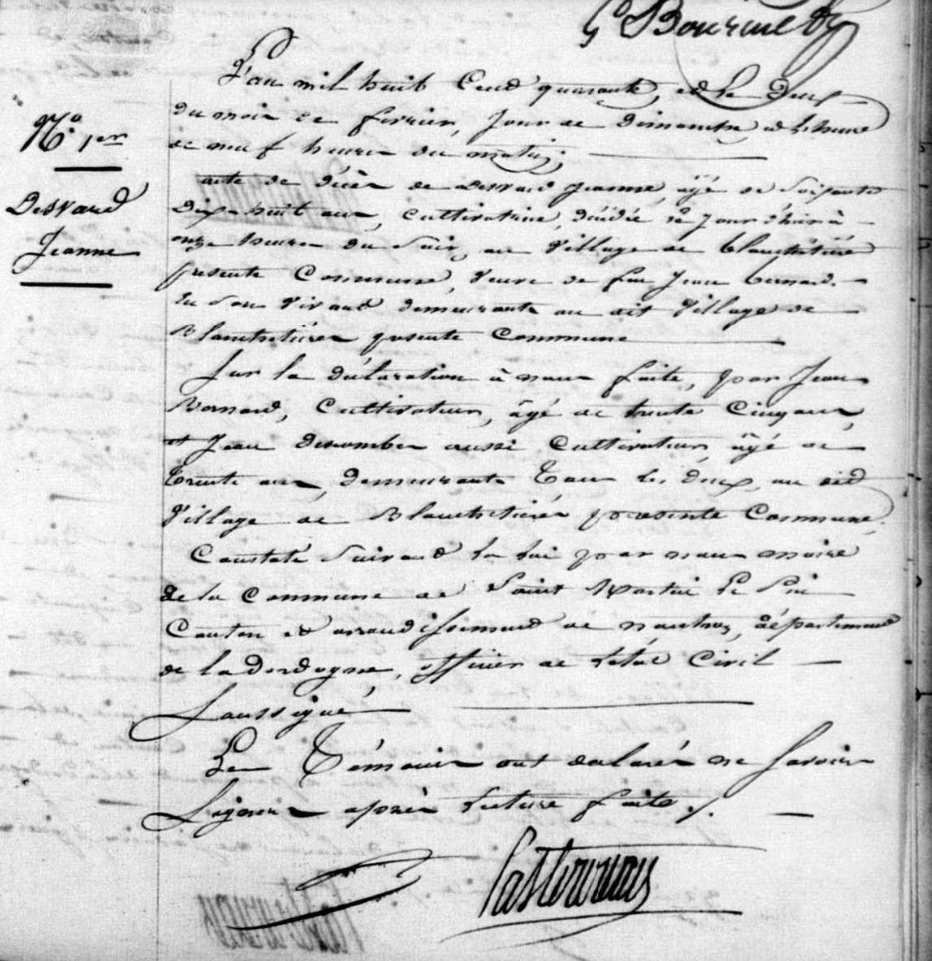 L'an mil huit Cend quarante, et le deux
du mois de fevrier, jour de dimanche, a l'heure
de neuf heures du matin;
N.º 1er
Desvard
Jeanne
acte de décès de desvard jeanne, âgé de Soixante
Dix-huit ans, Cultivatrice, décédée le jour d'hier à
onze heures du Soir, au Village de
presente Commune, Veuve de feu Jean bernard.
En Son Vivant demeurante au dit Village de
presente Commune
Sur la déclaration à nous faite, par Jean
Bernard, Cultivateur, âgé de trente Cinq ans,
et Jean aussi Cultivateur, âgé de
trente ans, demeurants tous les deux, au dit
Village de presente Commune.
Constaté Suivand la loi par nous maire
de la Commune de Saint Martin Le Pin
Canton et arrondissemend de nontron, département
de la Dordogne, officier de l'etat Civil
Soussigné
Les Témoins ont déclarés ne Savoir
Signer après lecture faite.